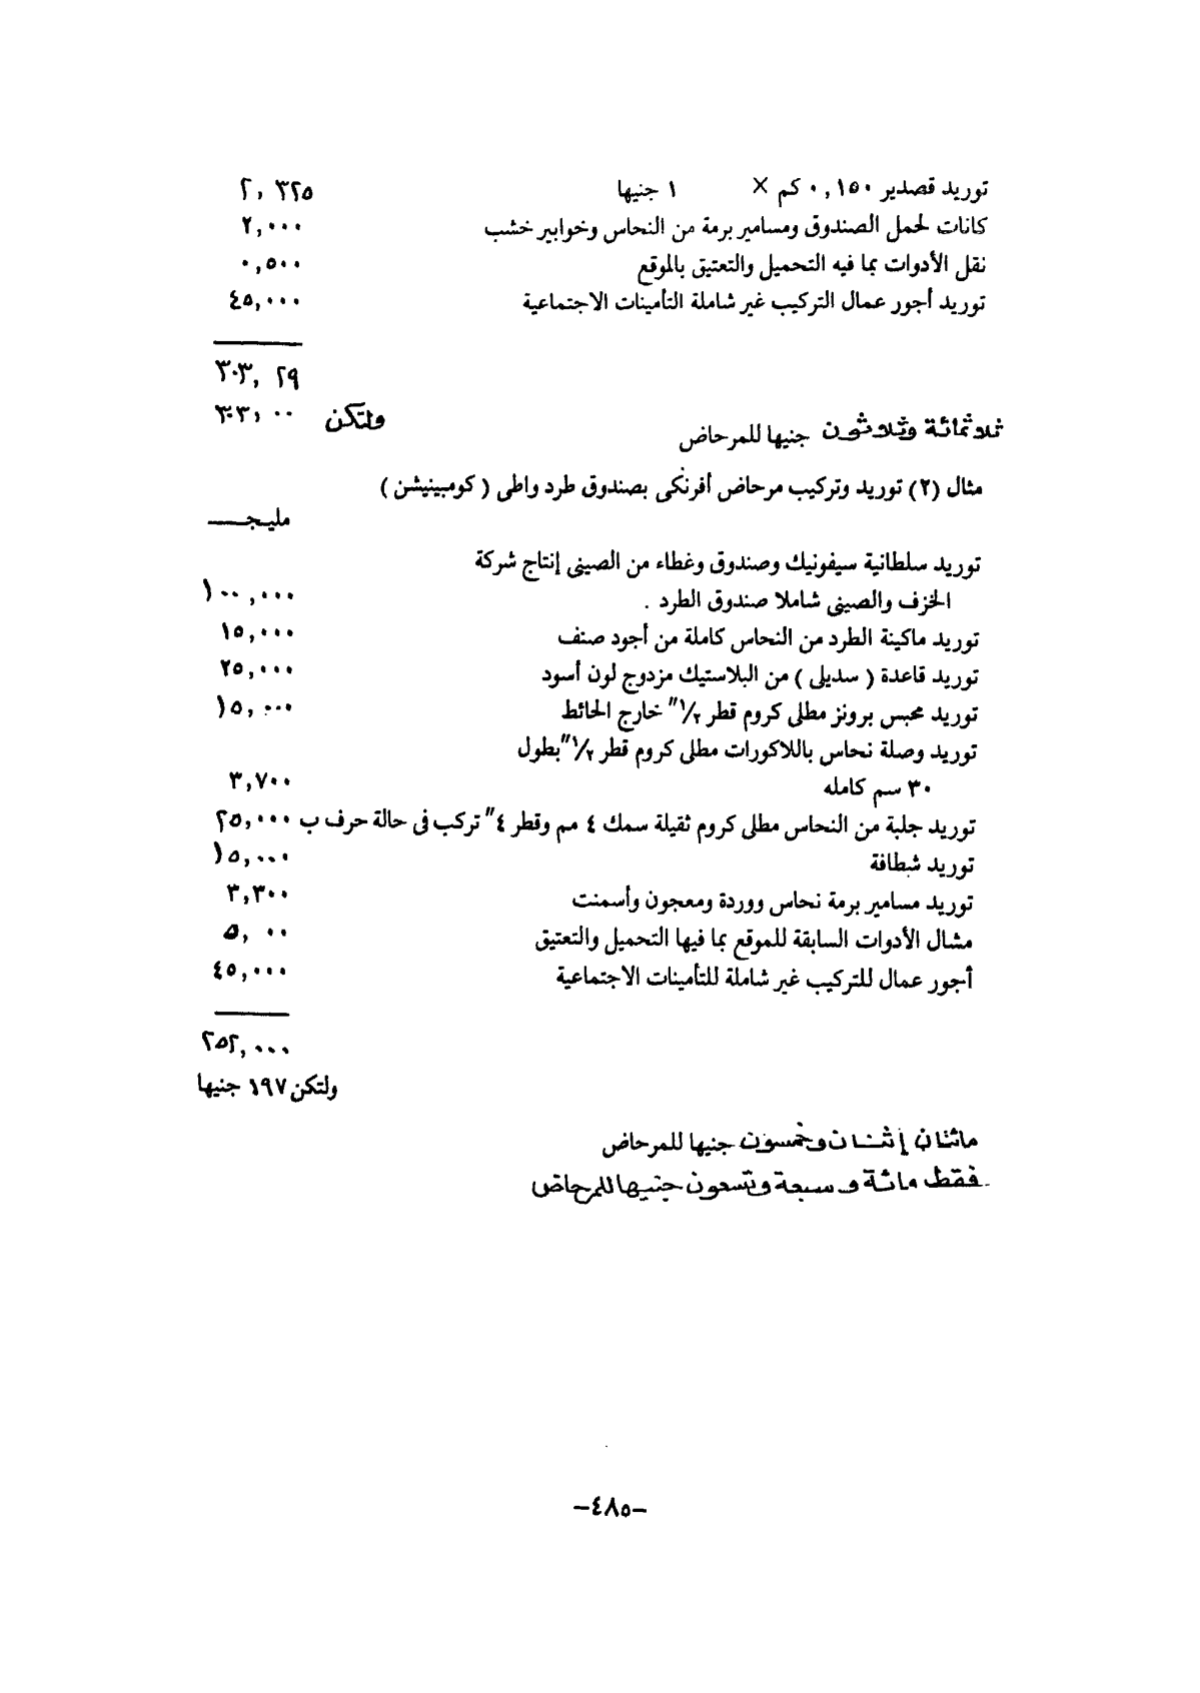 توريد قصدير ٠,١٥٠ كم × ١ جنيها ٢,٣٢٥
كانات لحمل الصندوق ومسامير برمة من النحاس وخوابير خشب ٢,٠٠٠
نقل الأدوات بما فيه التحميل والتعتيق بالموقع ٠,٥٠٠
توريد أجور عمال التركيب غير شاملة التأمينات الاجتماعية ٤٥,٠٠٠
٣٠٣,٢٩
ولتكن ٣٠٣,٠٠
ثلاثمائة وثلاثون جنيها للمرحاض
مثال (٢) توريد وتركيب مرحاض أفرنكى بصندوق طرد واطى (كومبينيشن)
مليـجـــ
توريد سلطانية سيفونيك وصندوق وغطاء من الصينى إنتاج شركة
الخزف والصينى شاملا صندوق الطرد . ١٠٠,٠٠٠
توريد ماكينة الطرد من النحاس كاملة من أجود صنف ١٥,٠٠٠
توريد قاعدة (سديلى) من البلاستيك مزدوج لون أسود ٢٥,٠٠٠
توريد محبس برونز مطلى كروم قطر ١/٢" خارج الحائط ١٥,٠٠٠
توريد وصلة نحاس باللاكورات مطلى كروم قطر ١/٢" بطول
٣٠ سم كامله ٣,٧٠٠
توريد جلبة من النحاس مطلى كروم ثقيلة سمك ٤ مم وقطر ٤" تركب فى حالة حرف ب ٢٥,٠٠٠
توريد شطافة ١٥,٠٠٠
توريد مسامير برمة نحاس ووردة ومعجون وأسمنت ٣,٣٠٠
مشال الأدوات السابقة للموقع بما فيها التحميل والتعتيق ٥,٠٠
أجور عمال للتركيب غير شاملة للتأمينات الاجتماعية ٤٥,٠٠٠
٢٥٢,٠٠٠
ولتكن ١٩٧ جنيها
مائتان إثنان وخمسون جنيها للمرحاض
فقط مائة و سبعة وتسعون جنيها للمرحاض
-٤٨٥-